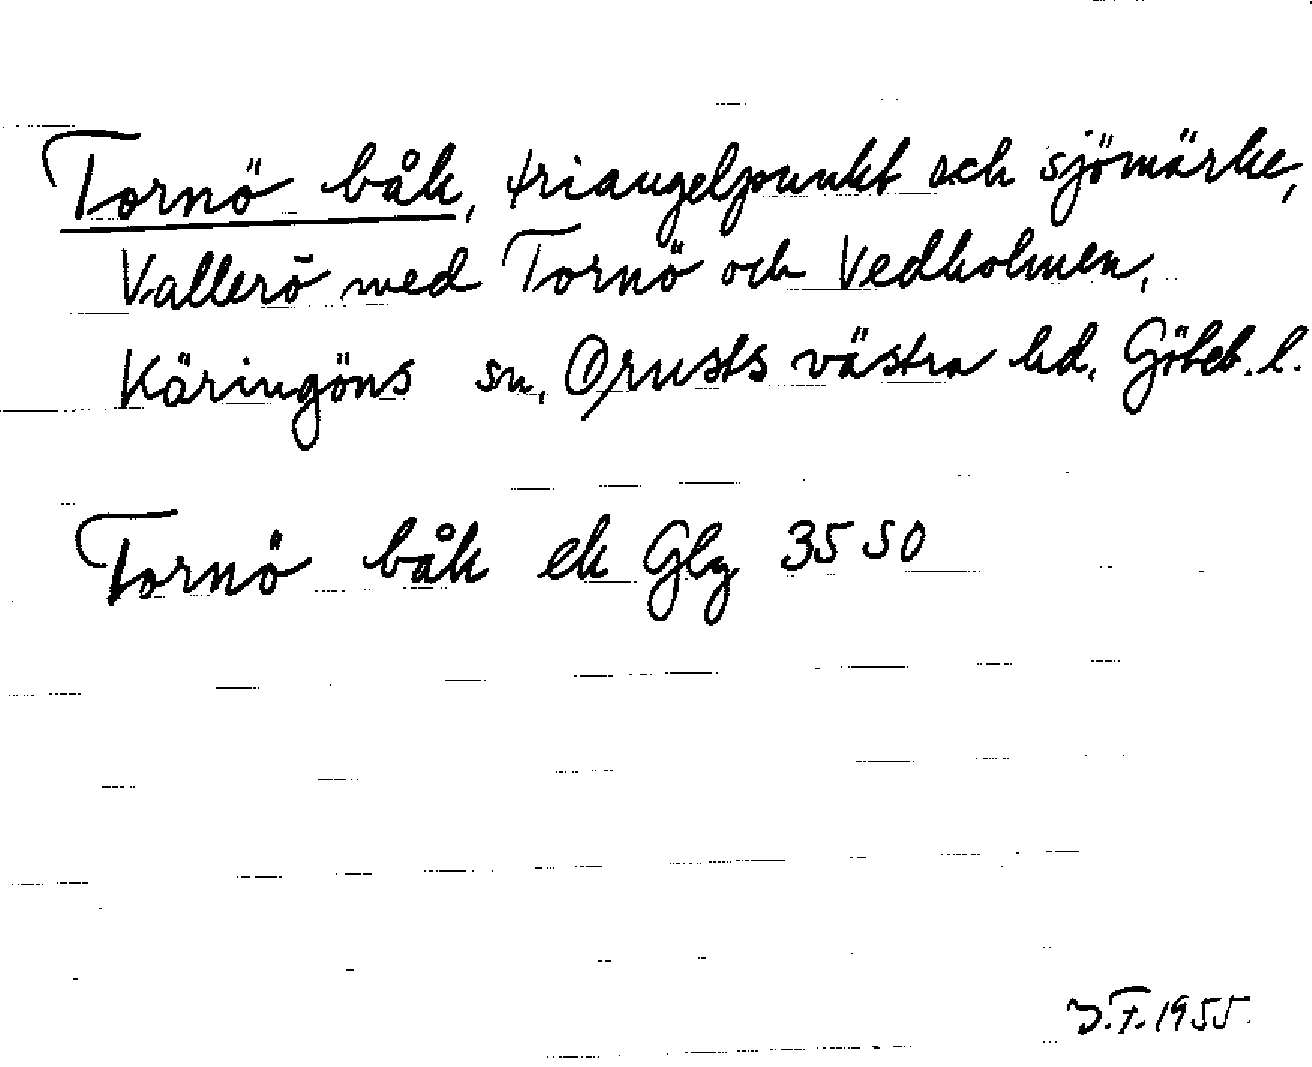 Tornö båk, triangelpunkt och sjömärke,
Vallerö med Tornö och Vedholmen,
Käringöns sn, Orusts västra hd. Göteb. l.
Tornö båk ek Glg 35 SO
J.F. 1955.